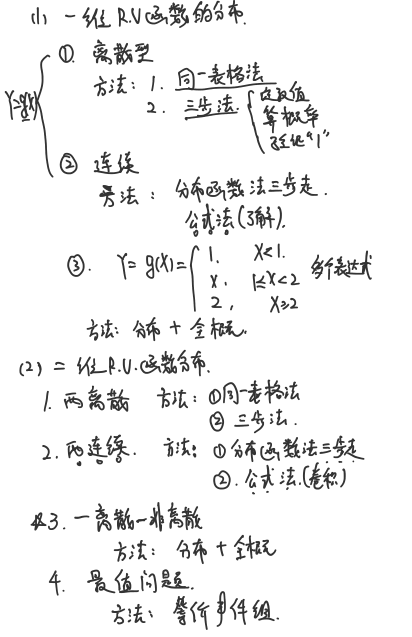 (1) 一维 R.V 函数的分布.
Y=g(x)
①. 离散型
方法: 1. 同一表格法
2. 三步法
定取值
算概率
验证"1"
② 连续
方法: 分布函数法三步走.
公式法(了解).
③. Y= g(X)=
1, X<1.
X, 1≤X<2 多个表达式
2, X≥2
方法: 分布 + 全概.
(2) 二维 R.V. 函数分布.
1. 两离散 方法: ①同一表格法
② 三步法.
2. 两连续. 方法: ①分布函数法三步走
②. 公式法.(卷积)
3. 一离散一非离散
方法: 分布 + 全概
4. 最值问题.
方法: 等价事件组.